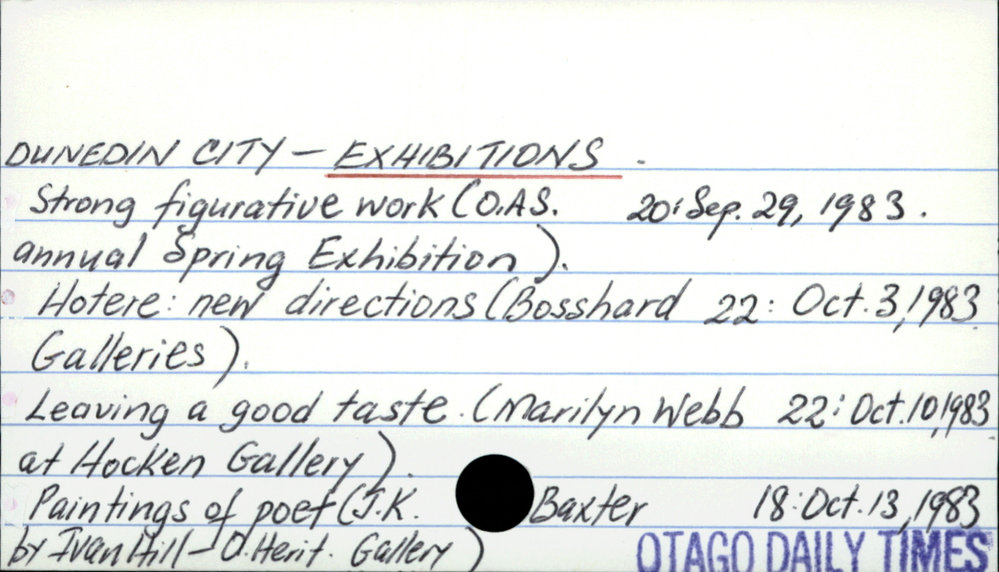 DUNEDIN CITY - EXHIBITIONS.
Strong figurative work (O.A.S. 20: Sep. 29, 1983.
annual Spring Exhibition).
Hotere: new directions (Bosshard 22: Oct. 3, 1983
Galleries).
Leaving a good taste. (Marilyn Webb 22: Oct. 10, 1983
at Hocken Gallery).
Paintings of poet (J.K. Baxter 18: Oct. 13, 1983
by Ivan Hill - O. Herit. Gallery)
OTAGO DAILY TIMES